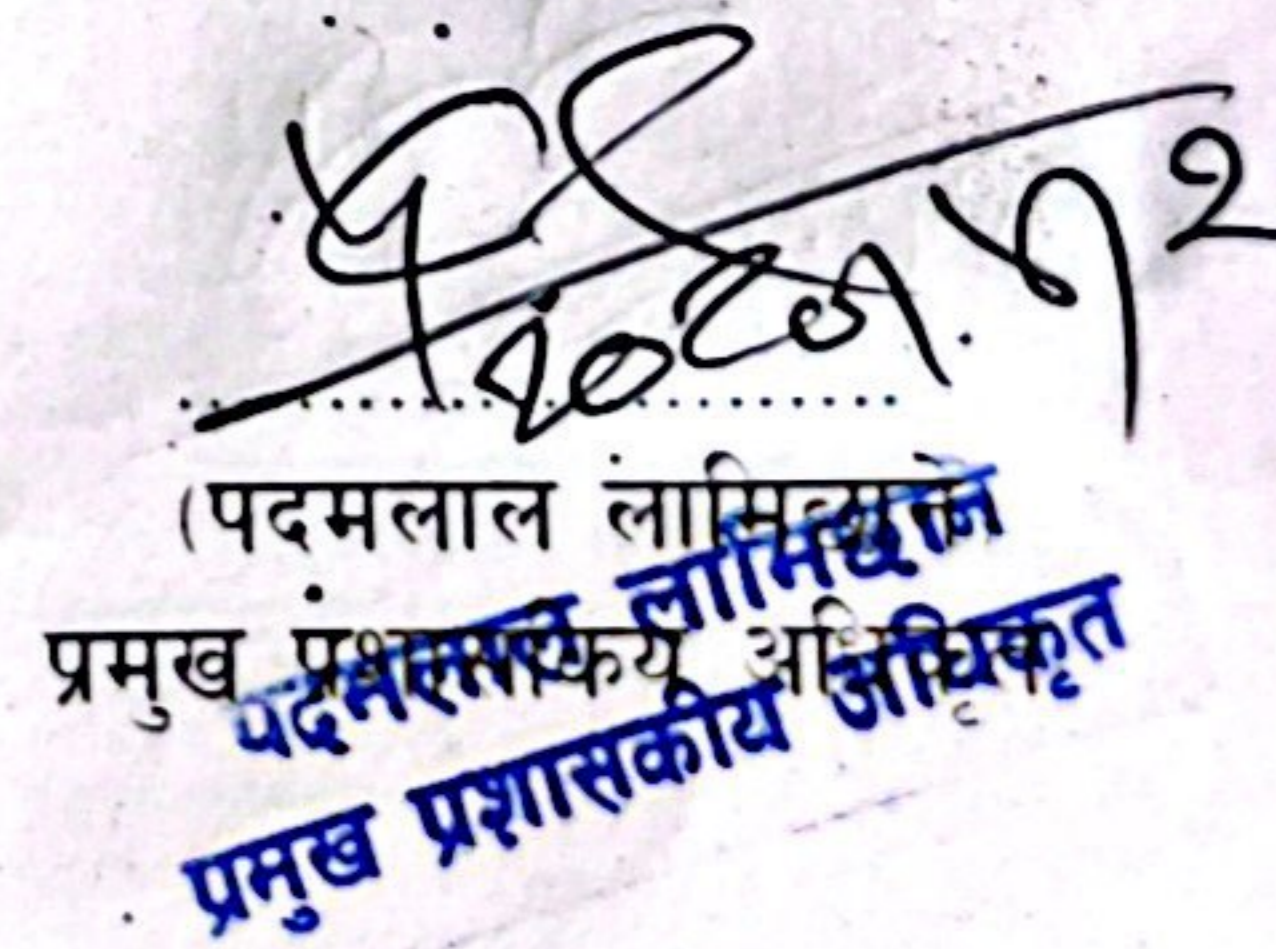 २०८१.५.२
(पदमलाल लामिछाने
प्रमुख प्रशासकिय अधिकृत
पदमलाल लामिछाने
प्रमुख प्रशासकीय अधिकृत